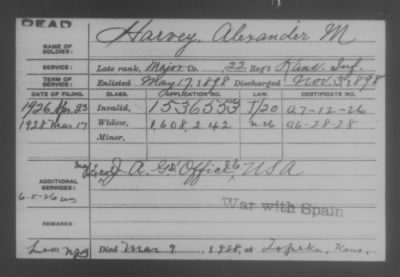 DEAD
Harvey, Alexander M
NAME OF SOLDIER:
SERVICE: Late rank, Major, Co. 22 Reg't Kans. Inf.
TERM OF SERVICE: Enlisted May 17, 1898 Discharged Nov. 3, 1898
DATE OF FILING. CLASS. APPLICATION NO. LAW. CERTIFICATE NO.
1926 Apr 23 Invalid, 1536533 J/20 A7-12-26
1928 Mar 17 Widow, 1,608,242 A6-28-28
Minor,
J. A. G. Office, USA
ADDITIONAL SERVICES:
War with Spain
REMARKS:
Died Mar 9, 1928, at Topeka, Kans.